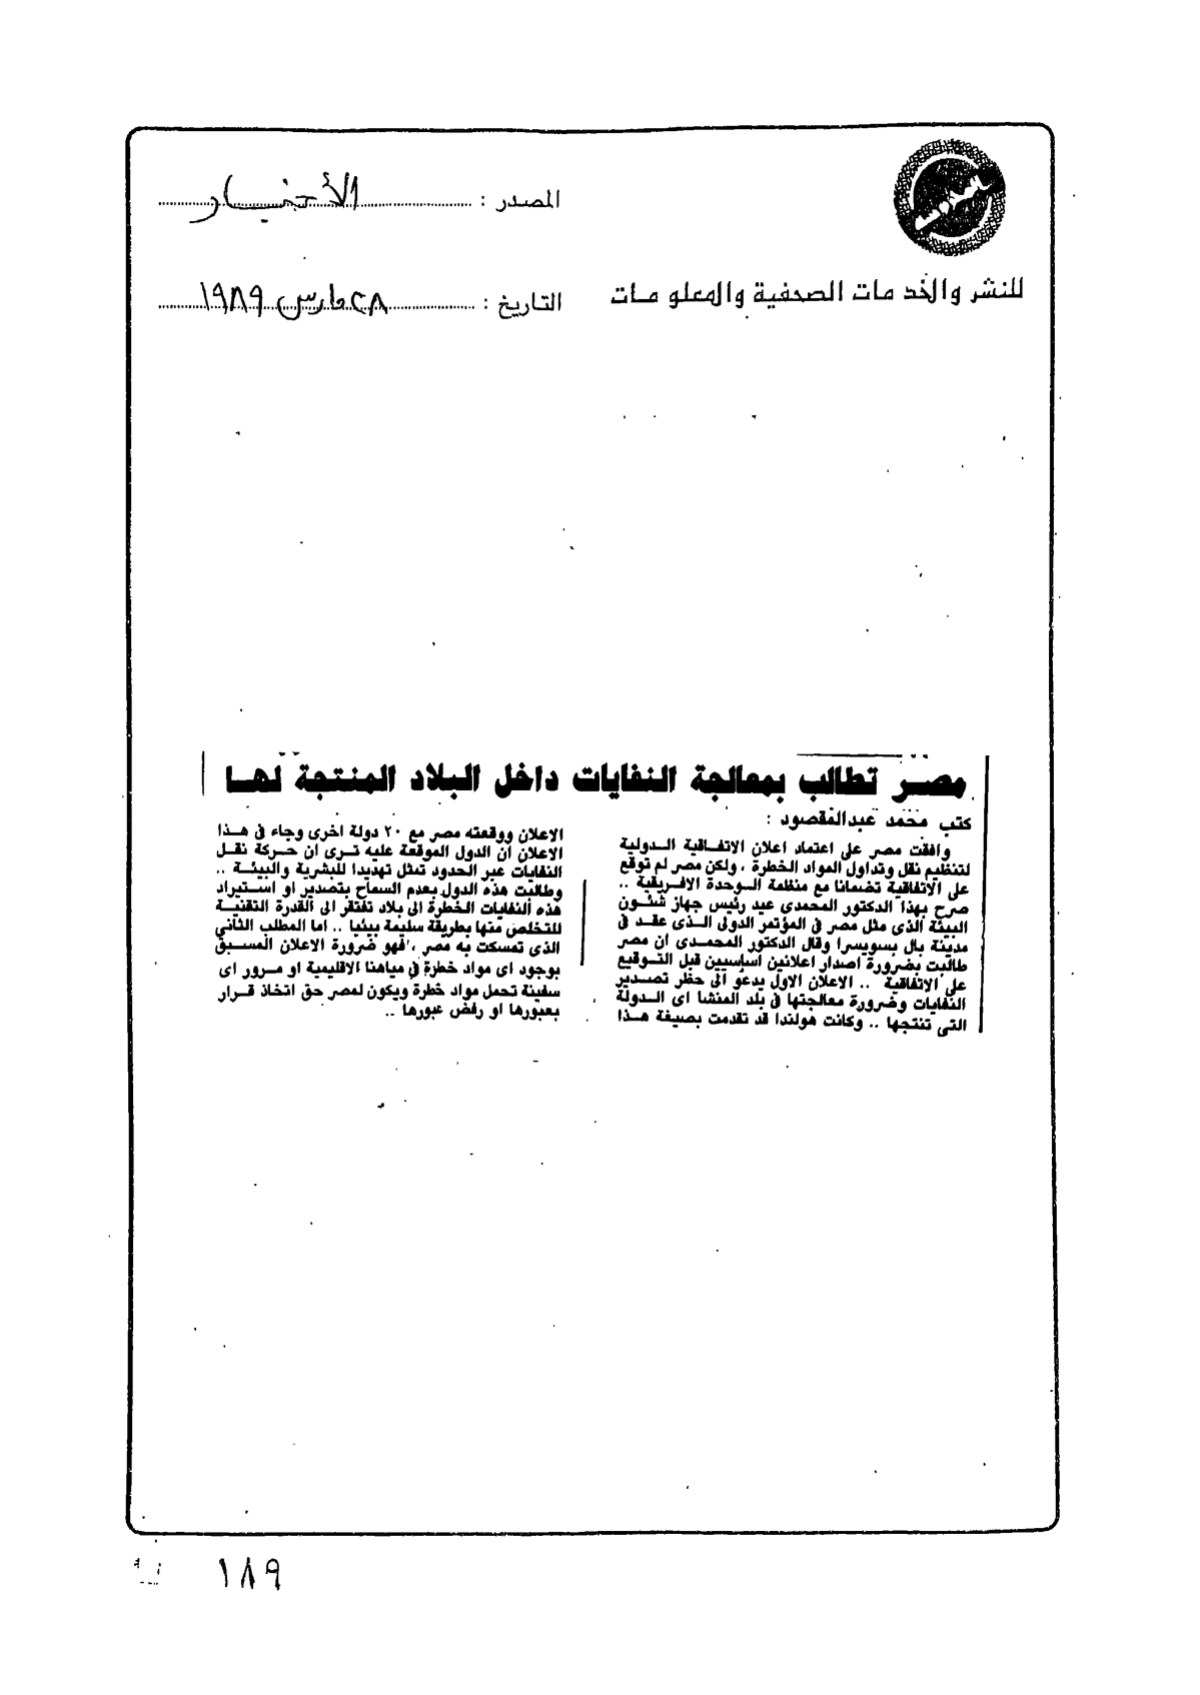 المصدر : الأخبار
للنشر والخدمات الصحفية والمعلومات
التاريخ : ٢٨ مارس ١٩٨٩
مصر تطالب بمعالجة النفايات داخل البلاد المنتجة لها
كتب محمد عبدالمقصود :
وافقت مصر على اعتماد اعلان الاتفاقية الدولية
لتنظيم نقل وتداول المواد الخطرة ، ولكن مصر لم توقع
على الاتفاقية تضمانا مع منظمة الوحدة الافريقية ..
صرح بهذا الدكتور المحمدى عيد رئيس جهاز شئون
البيئة الذى مثل مصر فى المؤتمر الدولى الذى عقد فى
مدينة بال بسويسرا وقال الدكتور المحمدى ان مصر
طالبت بضرورة اصدار اعلانين اساسيين قبل التوقيع
على الاتفاقية .. الاعلان الاول يدعو الى حظر تصدير
النفايات وضرورة معالجتها فى بلد المنشا اى الدولة
التى تنتجها .. وكانت هولندا قد تقدمت بصيغة هذا
الاعلان ووقعته مصر مع ٢٠ دولة اخرى وجاء فى هذا
الاعلان ان الدول الموقعة عليه ترى ان حركة نقل
النفايات عبر الحدود تمثل تهديدا للبشرية والبيئة ..
وطالبت هذه الدول بعدم السماح بتصدير او استيراد
هذه النفايات الخطرة الى بلاد تفتقر الى القدرة التقنية
للتخلص منها بطريقة سليمة بيئيا .. اما المطلب الثانى
الذى تمسكت به مصر ، فهو ضرورة الاعلان المسبق
بوجود اى مواد خطرة فى مياهنا الاقليمية او مرور اى
سفينة تحمل مواد خطرة ويكون لمصر حق اتخاذ قرار
بعبورها او رفض عبورها ..
١٨٩